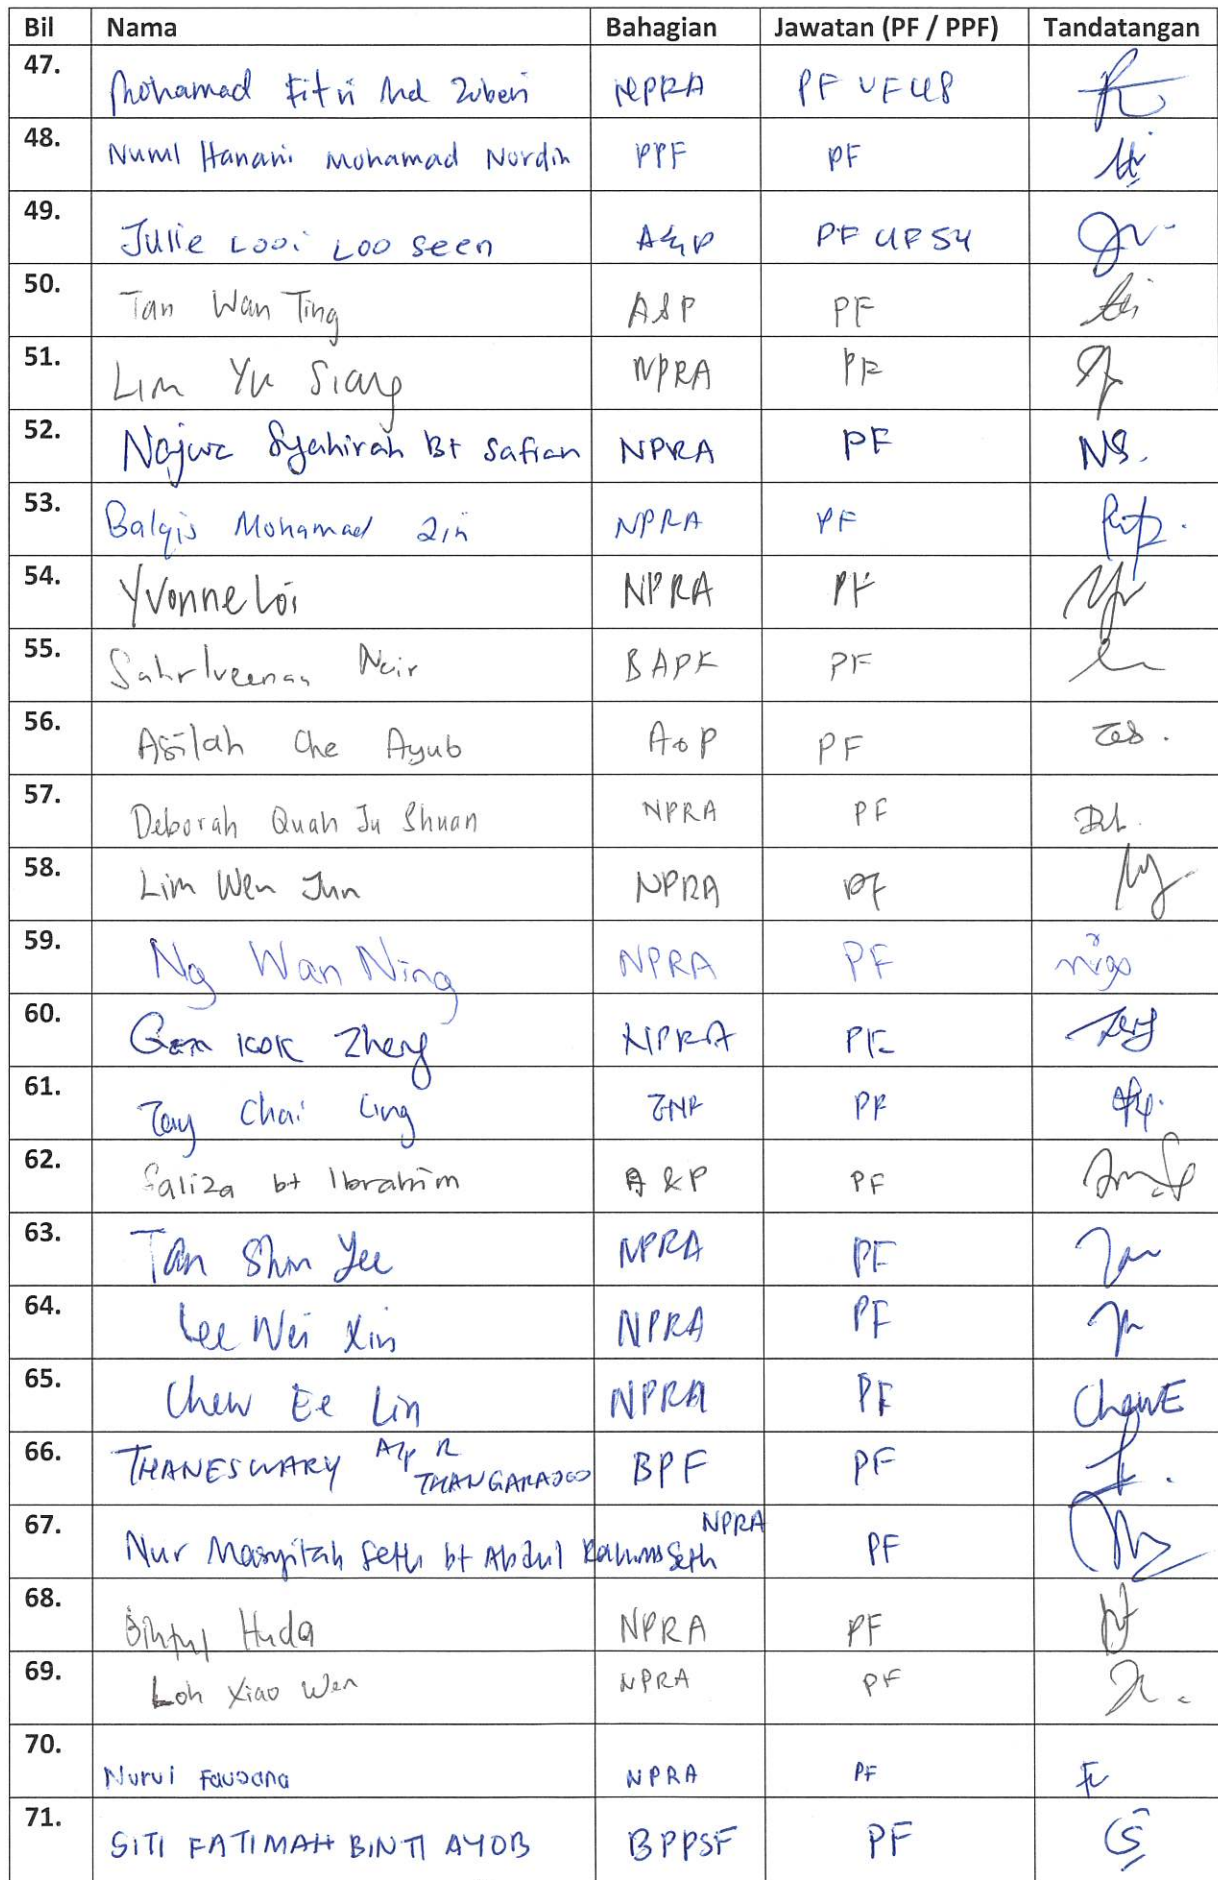 Bil Nama Bahagian Jawatan (PF / PPF) Tandatangan
47. Mohamad Fitri Md Zuberi NPRA PF UF48
48. Nurul Hanani Mohamad Nordin PPF PF
49. Julie Looi Loo Seen A&P PF UF54
50. Tan Wan Ting A&P PF
51. Lim Yu Siang NPRA PF
52. Najwa Syahirah Bt Safian NPRA PF NS.
53. Balqis Mohamad Zin NPRA PF
54. Yvonne Loi NPRA PF
55. Nair BAPF PF
56. Asilah Che Ayub A&P PF
57. Deborah Quah Ju Shuan NPRA PF
58. Lim Wen Jun NPRA PF
59. Ng Wan Ning NPRA PF
60. Gan Kok Zheng NPRA PF
61. Tay Chai Ling PF
62. Faliza bt Ibrahim A&P PF
63. Tan Shin Yee NPRA PF
64. Lee Wei Xin NPRA PF
65. Chew Ee Lin NPRA PF ChewE
66. THANESWARY A/P R THANGARAJOO BPF PF
67. Nur Masyitah Seth bt Abdul Rahims Seth NPRA PF
68. Bintul Huda NPRA PF
69. Loh Xiao Wen NPRA PF
70. Nurul Fauzana NPRA PF
71. SITI FATIMAH BINTI AYOB BPPSF PF